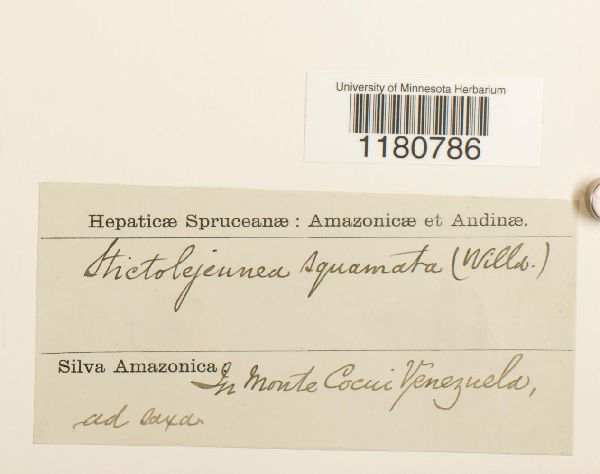 University of Minnesota Herbarium
1180786
Hepaticæ Spruceanæ: Amazonicæ et Andinæ.
Stictolejeunea squamata (Willd.)
Silva Amazonica In Monte Cocui Venezuela,
ad saxa